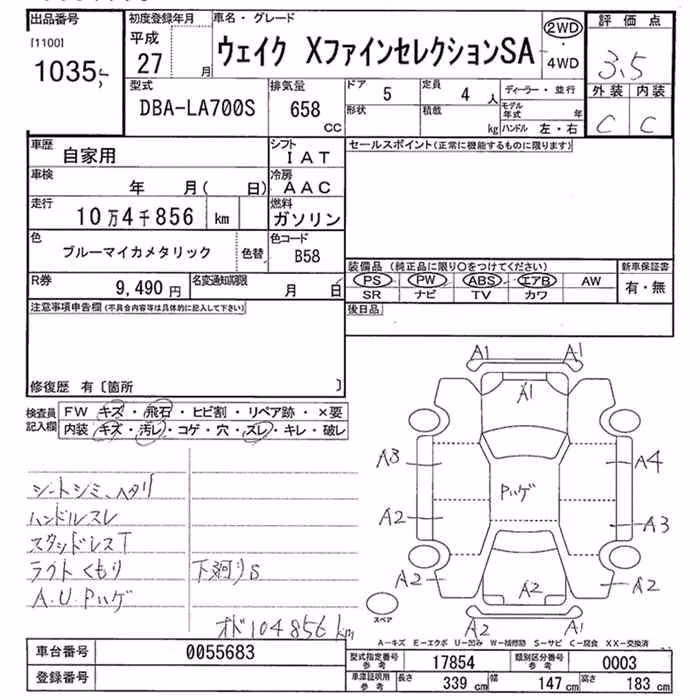 出品番号
[1100]
1035
初度登録年月
平成
27 月
車名・グレード
ウェイク XファインセレクションSA
2WD
・
4WD
評価点
3.5
外装 内装
C C
型式
DBA-LA700S
排気量
658
CC
ドア 5
定員 4 人
形状
積載 kg
ディーラー・並行
モデル年式 年
ハンドル 左・右
車歴 自家用
シフト IAT
車検 年 月( 日)
冷房 AAC
走行 10万4千856 km
燃料 ガソリン
色 ブルーマイカメタリック 色替
色コード B58
R券 9,490円
名変通知期限 月 日
セールスポイント(正常に機能するものに限ります)
装備品(純正品に限り○をつけてください)
PS PW ABS エアB AW
SR ナビ TV カワ
新車保証書
有・無
後日品
注意事項申告欄(不具合内容等は具体的に記入して下さい)
修復歴 有〔箇所 〕
検査員記入欄
FW キズ・飛石・ヒビ割・リペア跡・×要
内装 キズ・汚レ・コゲ・穴・スレ・キレ・破レ
シートシミ、ヘタリ
ハンドルスレ
スタッドレスT
ライトくもり
A.U Pハゲ
下廻りS
オド104856km
A1 A1
A1
A3 A4
Pハゲ
A2 A3
A2 A2
A2
A2 A1
スペア
A-キズ E-エクボ U-凹み W-補修跡 S-サビ C-腐食 XX-交換済
車台番号 0055683
登録番号
型式指定番号参考 17854
類別区分番号参考 0003
車庫証明用参考 長さ 339cm 幅 147cm 高さ 183cm